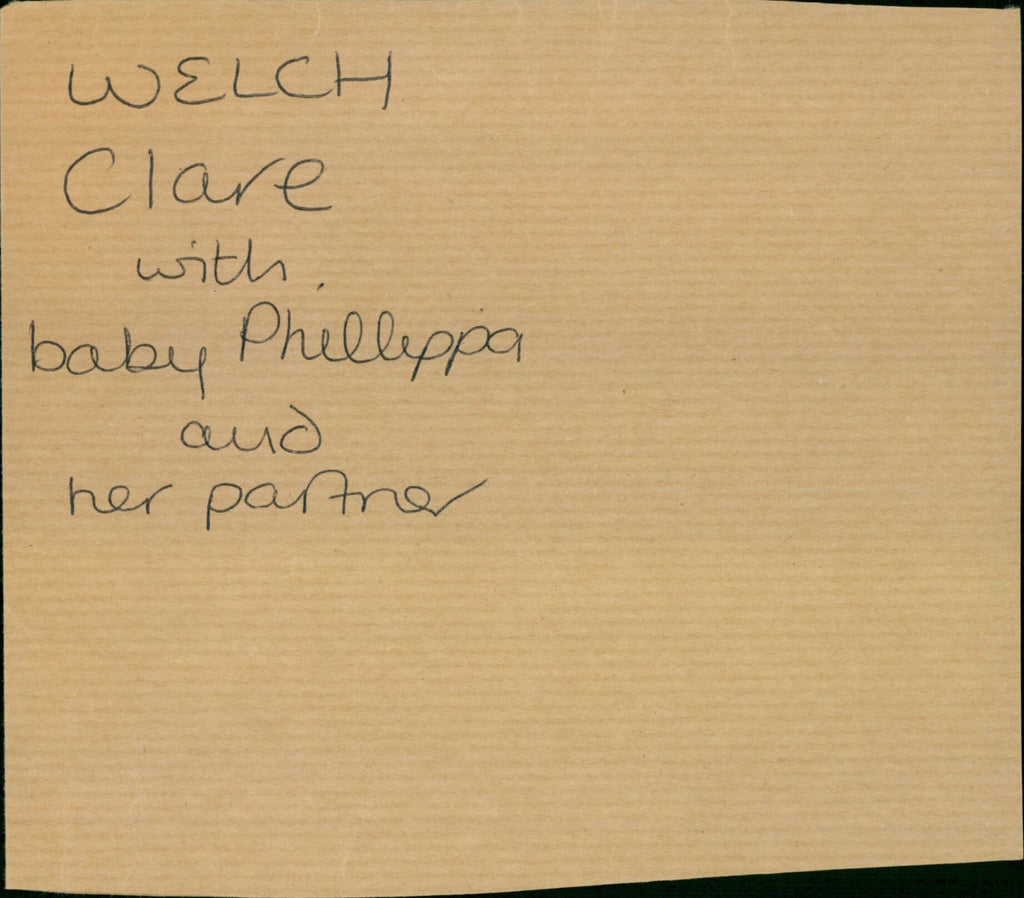 WELCH
Clare
with
baby Phillippa
and
her partner